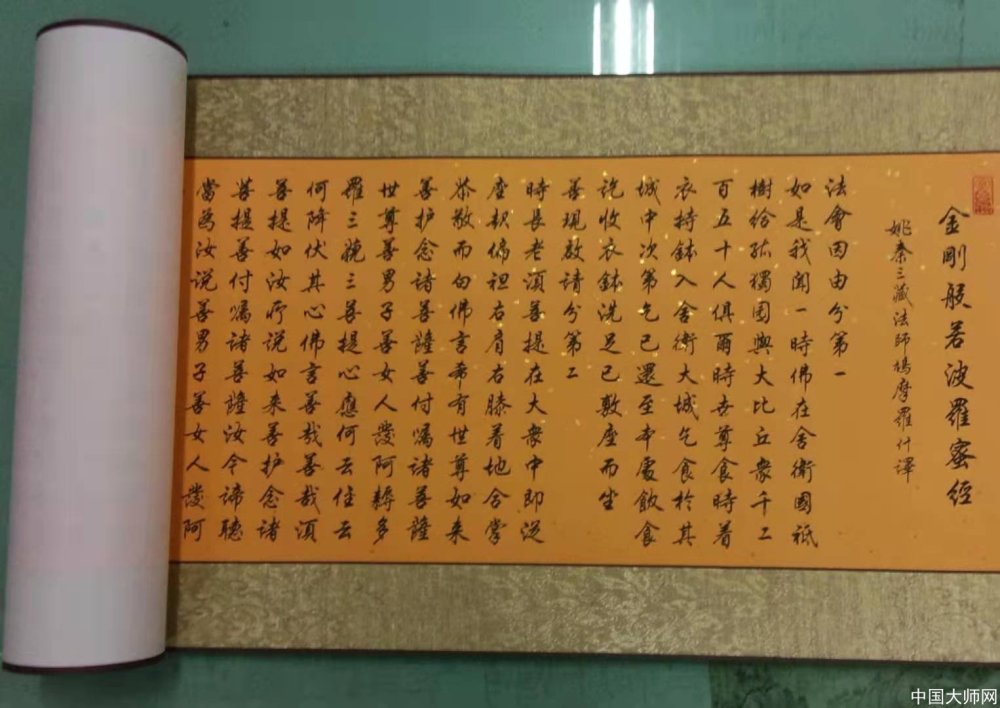 金剛般若波羅蜜經
姚秦三藏法師鳩摩羅什譯
法會因由分第一
如是我聞一時佛在舍衛國祗
樹給孤獨園與大比丘衆千二
百五十人俱爾時世尊食時着
衣持鉢入舍衛大城乞食於其
城中次第乞已還至本處飲食
訖收衣鉢洗足已敷座而坐
善現啟請分第二
時長老湏菩提在大衆中即從
座起偏袒右肩右膝着地合掌
恭敬而白佛言希有世尊如来
善护念諸菩薩善付嘱諸菩薩
世尊善男子善女人發阿耨多
羅三藐三菩提心應何云住云
何降伏其心佛言善哉善哉湏
菩提如汝所说如来善护念諸
菩提善付嘱諸菩薩汝今諦聽
當為汝说善男子善女人發阿
中国大师网